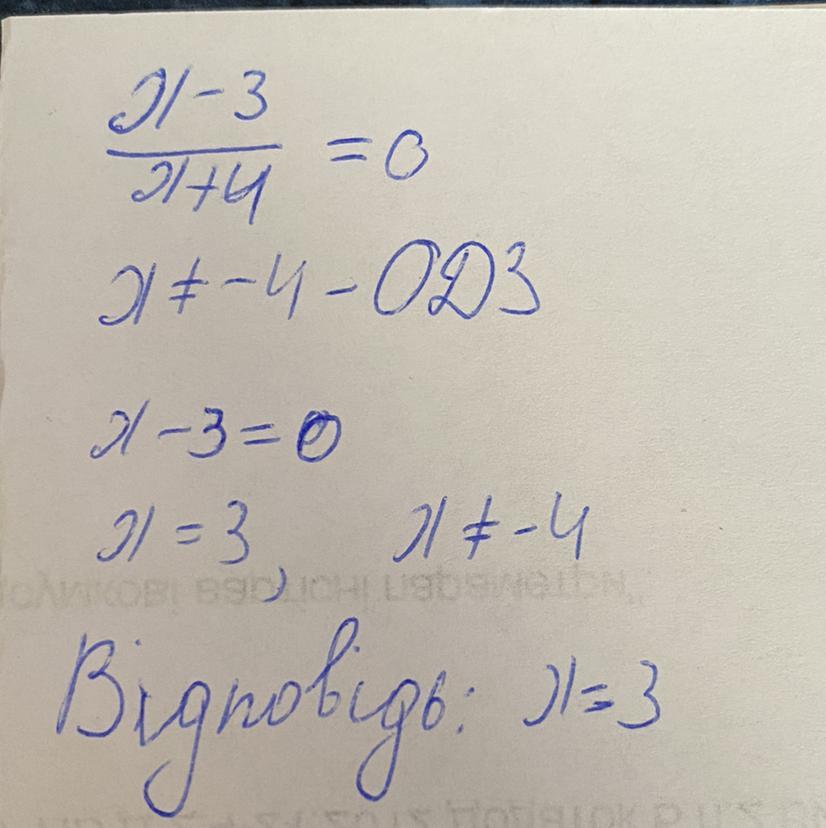 x-3
x+4 = 0
x ≠ -4 - ОДЗ
x - 3 = 0
x = 3, x ≠ -4
Відповідь: x = 3